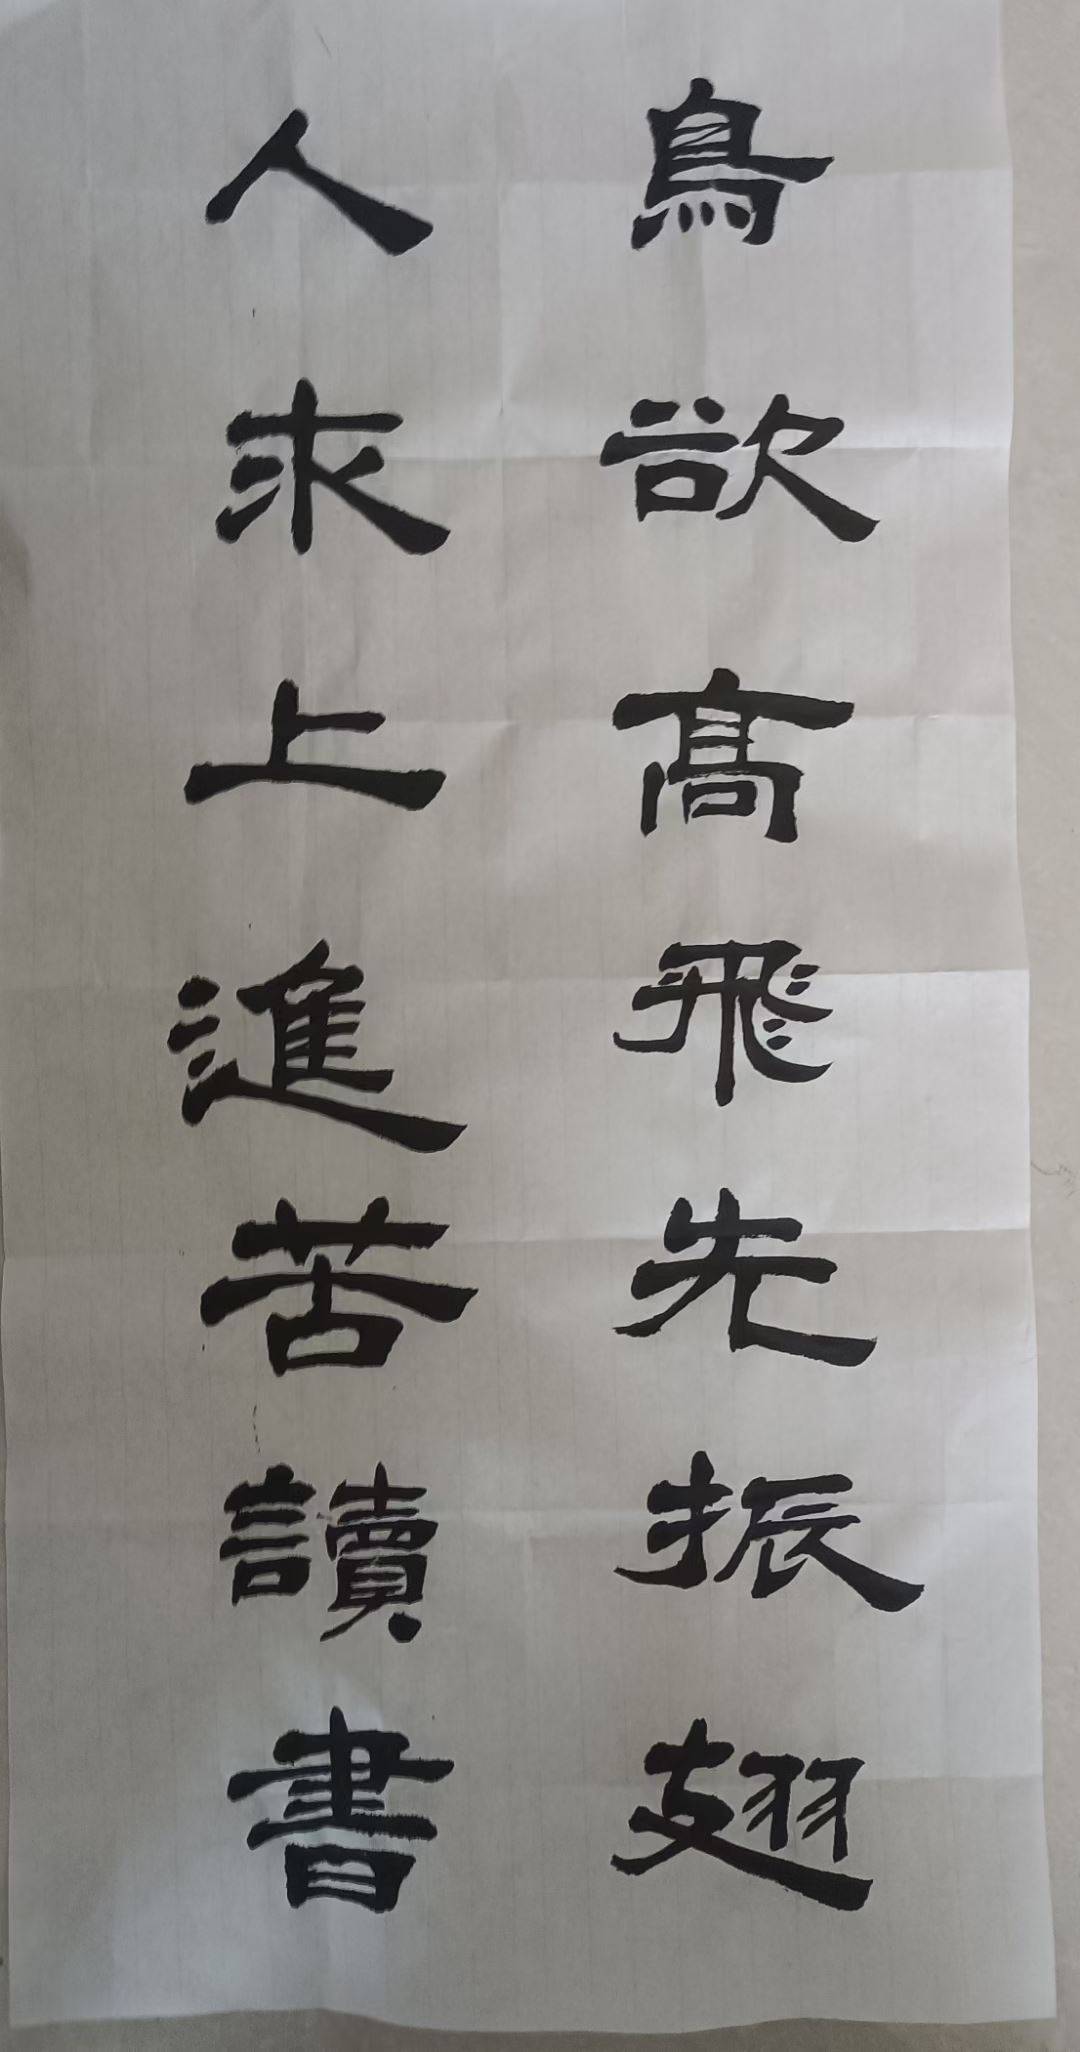 鳥欲髙飛先振翅
人求上進苦讀書